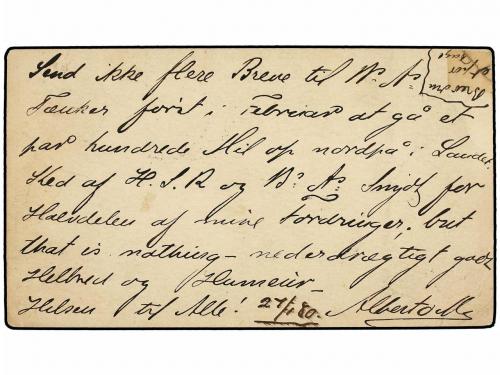 Send ikke flere Breve til Bs As
Tænker först i Februar at gå et
par hundrede Mil op nordpå i Landet.
Ked af H. S. R og Bs As Snydt for
Halvdelen af mine Fordringer, but
that is nothing - nederdrægtigt godt
Helbred og Humeür -
Hilsen til Alle! 27/1 80. Alberto